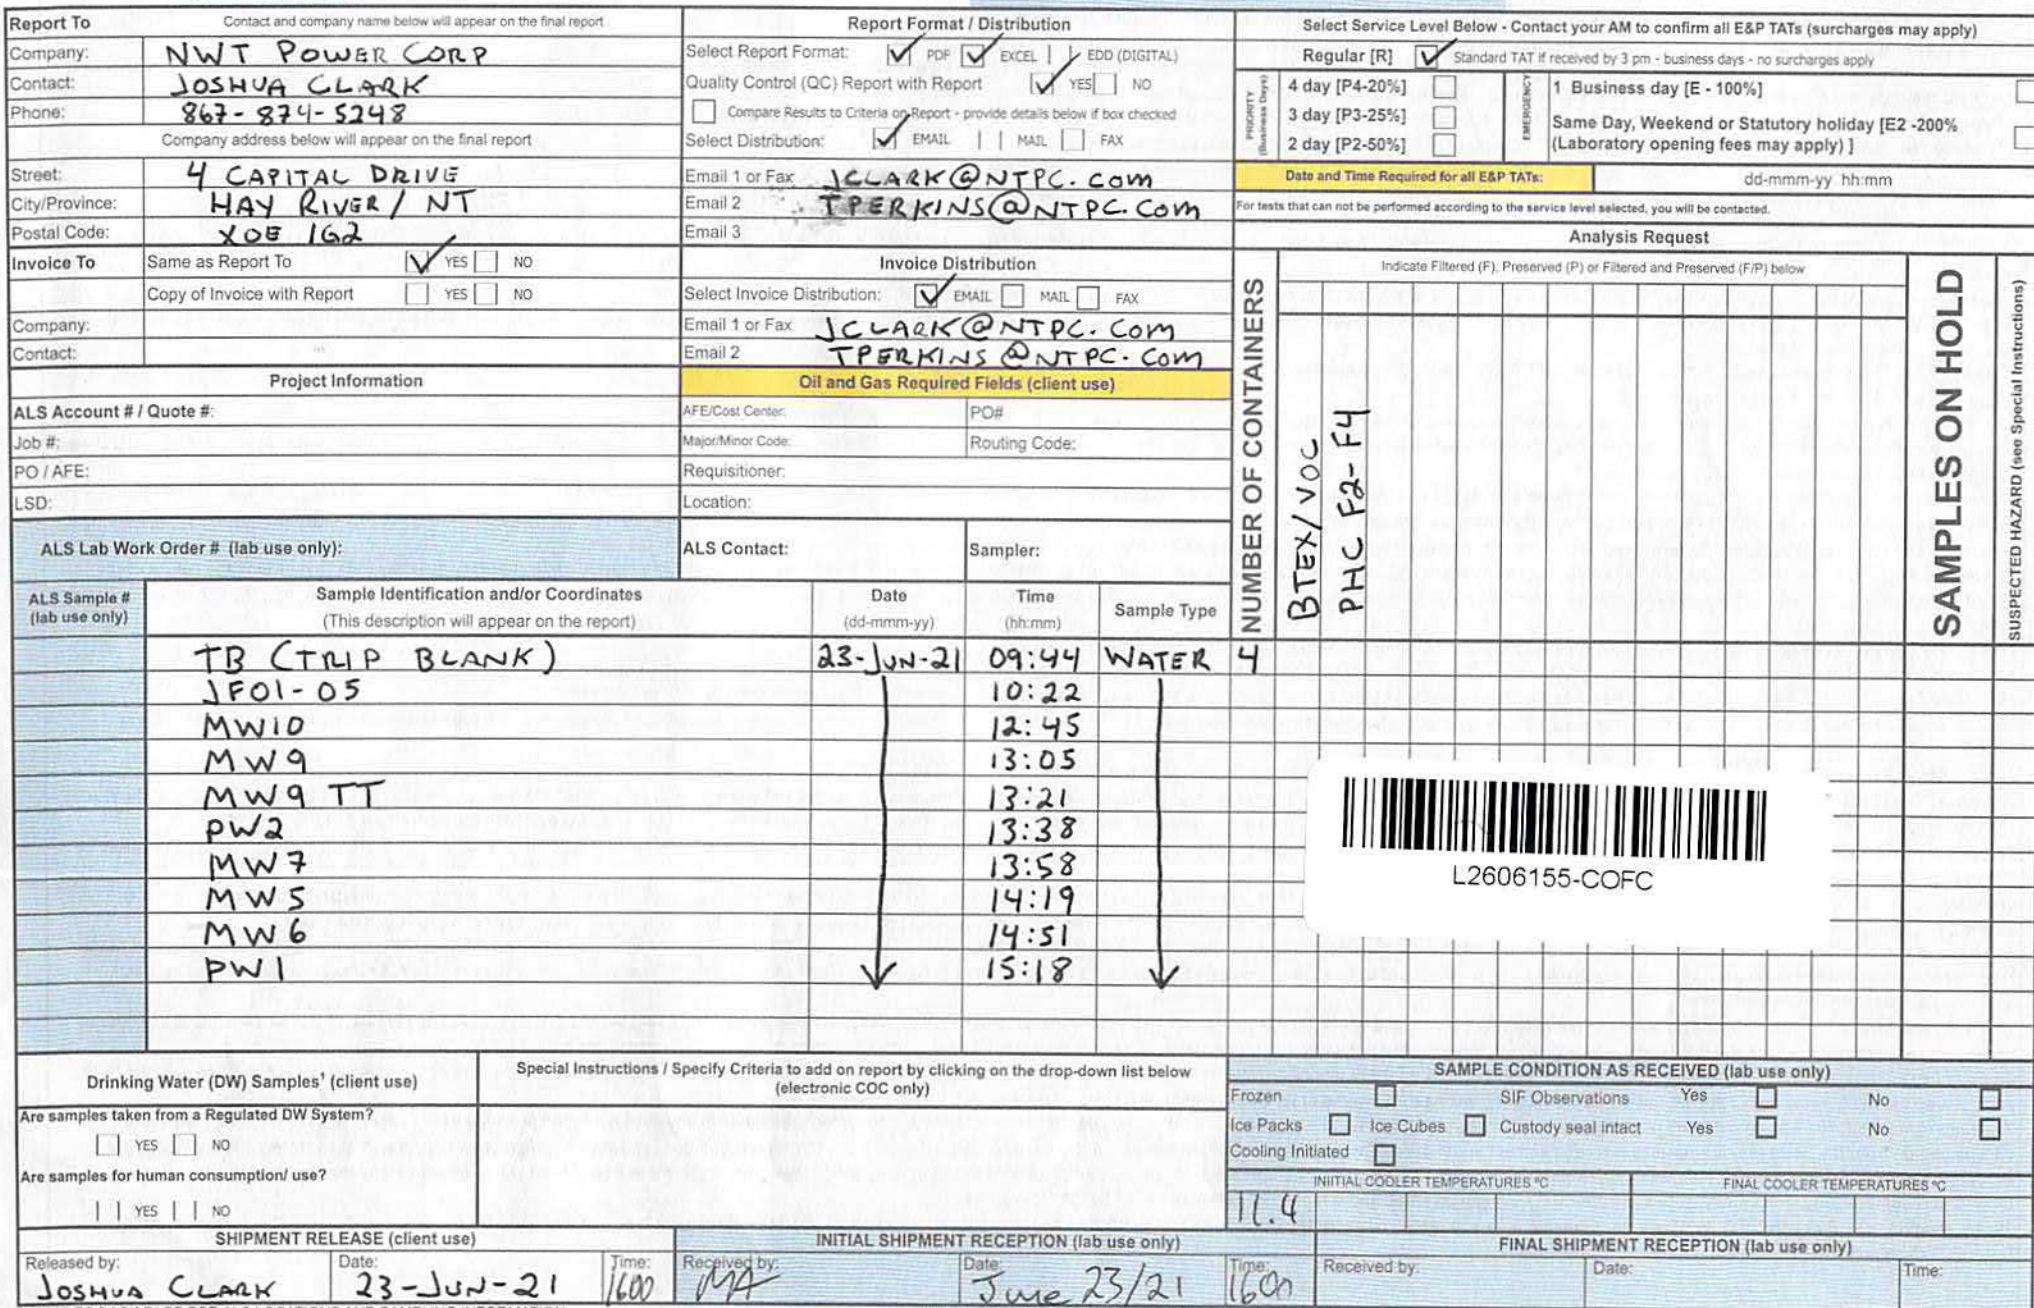 Report To Contact and company name below will appear on the final report
Company: NWT POWER CORP
Contact: JOSHUA CLARK
Phone: 867-874-5248
Company address below will appear on the final report
Street: 4 CAPITAL DRIVE
City/Province: HAY RIVER/NT
Postal Code: X0E 1G2
Invoice To Same as Report To YES NO
Copy of Invoice with Report YES NO
Company:
Contact:
Project Information
ALS Account # / Quote #:
Job #:
PO / AFE:
LSD:
ALS Lab Work Order # (lab use only):
Report Format / Distribution
Select Report Format: PDF EXCEL EDD (DIGITAL)
Quality Control (QC) Report with Report YES NO
Compare Results to Criteria on Report - provide details below if box checked
Select Distribution: EMAIL MAIL FAX
Email 1 or Fax JCLARK@NTPC.com
Email 2 TPERKINS@NTPC.Com
Email 3
Invoice Distribution
Select Invoice Distribution: EMAIL MAIL FAX
Email 1 or Fax JCLARK@NTPC.Com
Email 2 TPERKINS@NTPC.Com
Oil and Gas Required Fields (client use)
AFE/Cost Center: PO#
Major/Minor Code: Routing Code:
Requisitioner:
Location:
ALS Contact: Sampler:
Select Service Level Below - Contact your AM to confirm all E&P TATs (surcharges may apply)
Regular [R] Standard TAT if received by 3 pm - business days - no surcharges apply
PRIORITY (Business Days)
4 day [P4-20%]
3 day [P3-25%]
2 day [P2-50%]
EMERGENCY
1 Business day [E - 100%]
Same Day, Weekend or Statutory holiday [E2 -200%
(Laboratory opening fees may apply) ]
Date and Time Required for all E&P TATs: dd-mmm-yy hh:mm
For tests that can not be performed according to the service level selected, you will be contacted.
Analysis Request
Indicate Filtered (F), Preserved (P) or Filtered and Preserved (F/P) below
NUMBER OF CONTAINERS
BTEX/VOC
PHC F2-F4
SAMPLES ON HOLD
SUSPECTED HAZARD (see Special Instructions)
ALS Sample # (lab use only)
Sample Identification and/or Coordinates
(This description will appear on the report)
Date (dd-mmm-yy)
Time (hh:mm)
Sample Type
TB (TRIP BLANK) 23-JUN-21 09:44 WATER 4
JF01-05 10:22
MW10 12:45
MW9 13:05
MW9 TT 13:21
PW2 13:38
MW7 13:58
MW5 14:19
MW6 14:51
PW1 15:18
L2606155-COFC
Drinking Water (DW) Samples' (client use)
Are samples taken from a Regulated DW System?
YES NO
Are samples for human consumption/ use?
YES NO
Special Instructions / Specify Criteria to add on report by clicking on the drop-down list below
(electronic COC only)
SAMPLE CONDITION AS RECEIVED (lab use only)
Frozen SIF Observations Yes No
Ice Packs Ice Cubes Custody seal intact Yes No
Cooling Initiated
INITIAL COOLER TEMPERATURES ºC FINAL COOLER TEMPERATURES ºC
11.4
SHIPMENT RELEASE (client use)
Released by: JOSHUA CLARK Date: 23-JUN-21 Time: 1600
INITIAL SHIPMENT RECEPTION (lab use only)
Received by: MA Date: June 23/21 Time: 1600
FINAL SHIPMENT RECEPTION (lab use only)
Received by: Date: Time: